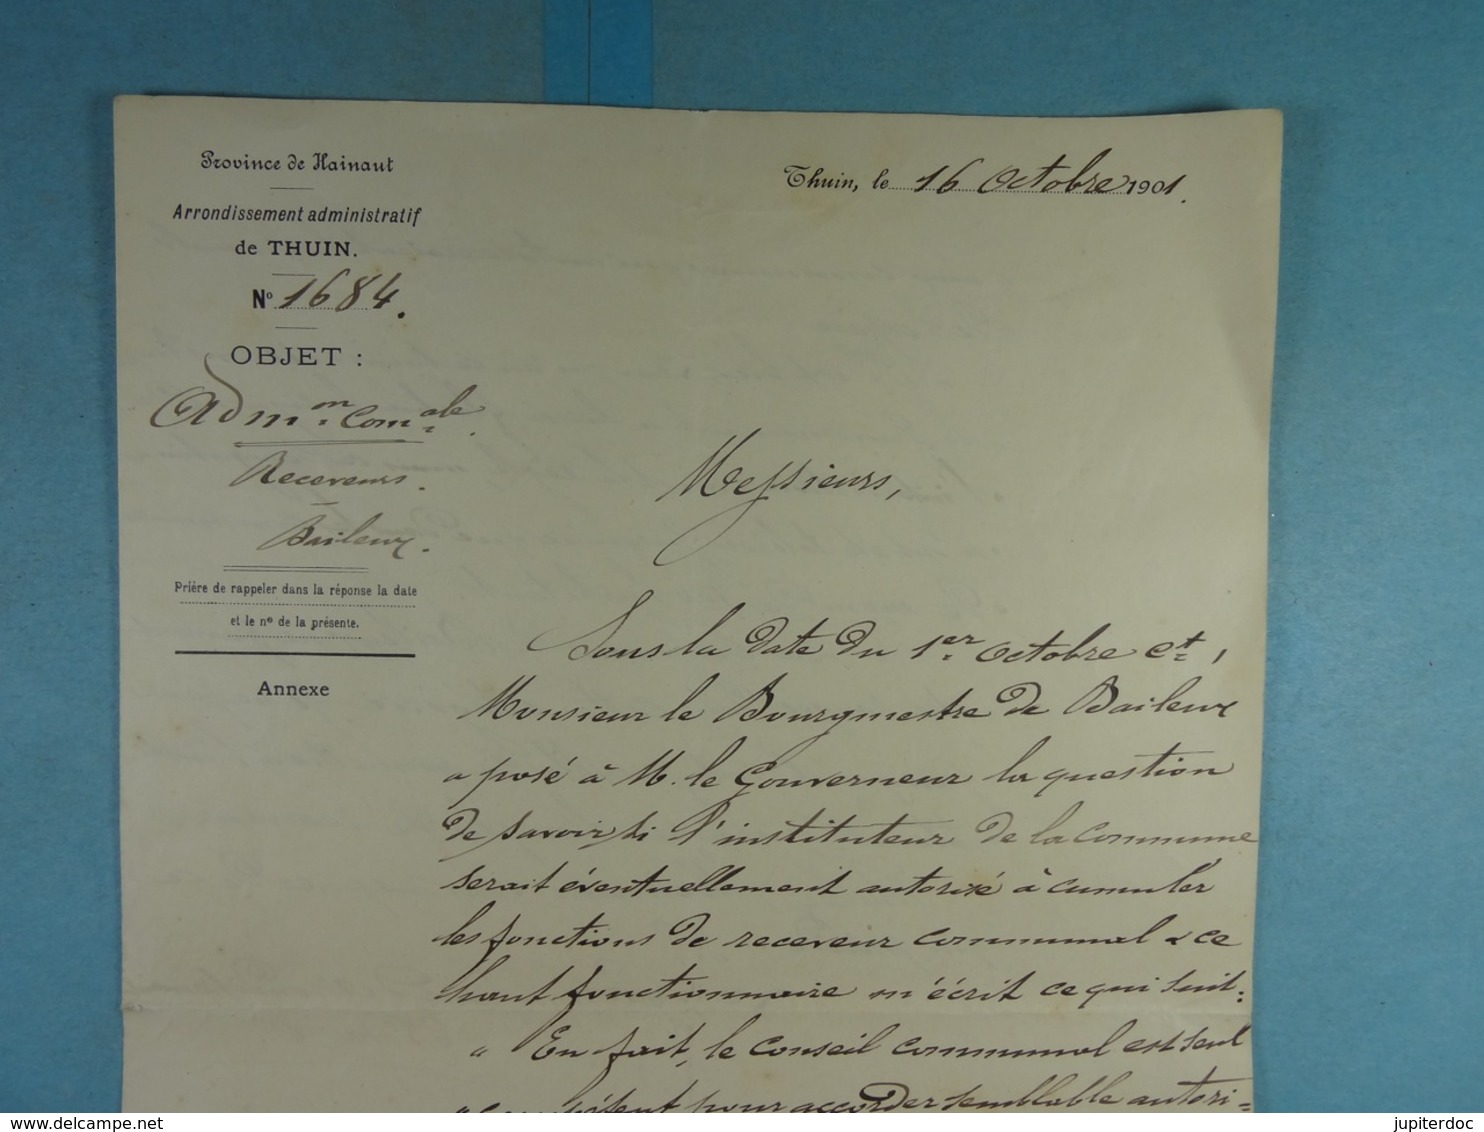 Province de Hainaut
Arrondissement administratif
de THUIN.
Nº 1684.
OBJET :
Admon Comale.
Receveurs.
Baileux.
Prière de rappeler dans la réponse la date
et le nº de la présente.
Annexe
Thuin, le 16 Octobre 1901.
Messieurs,
Sous la date du 1er Octobre ct,
Monsieur le Bourgmestre de Baileux
a posé à M. le Gouverneur la question
de savoir si l'instituteur de la commune
serait éventuellement autorisé à cumuler
les fonctions de receveur communal & ce
haut fonctionnaire m'écrit ce qui suit:
" En fait, le conseil communal est seul
" compétent pour accorder semblable autori=
jupiterdoc